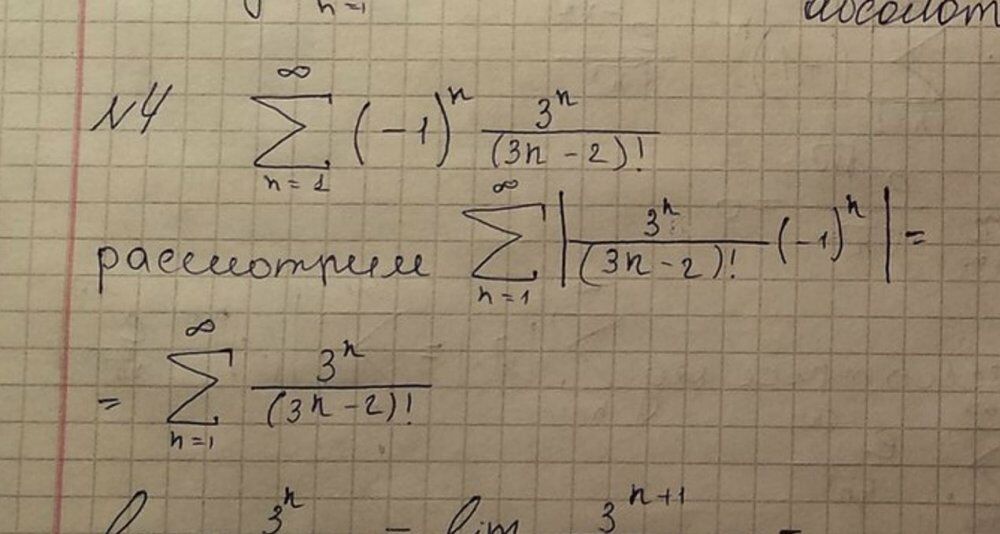 n=1 абсолют
№4 \sum_{n=1}^{\infty} (-1)^n \frac{3^n}{(3n-2)!}
рассмотрим \sum_{n=1}^{\infty} \left| \frac{3^n}{(3n-2)!} (-1)^n \right| =
= \sum_{n=1}^{\infty} \frac{3^n}{(3n-2)!}
3^n = lim 3^{n+1} =